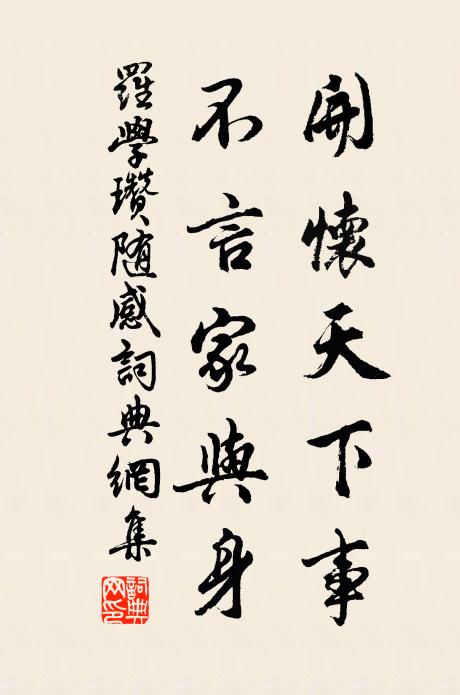 開懷天下事
不言家與身
羅學瓚随感詞典網集
詞典网印